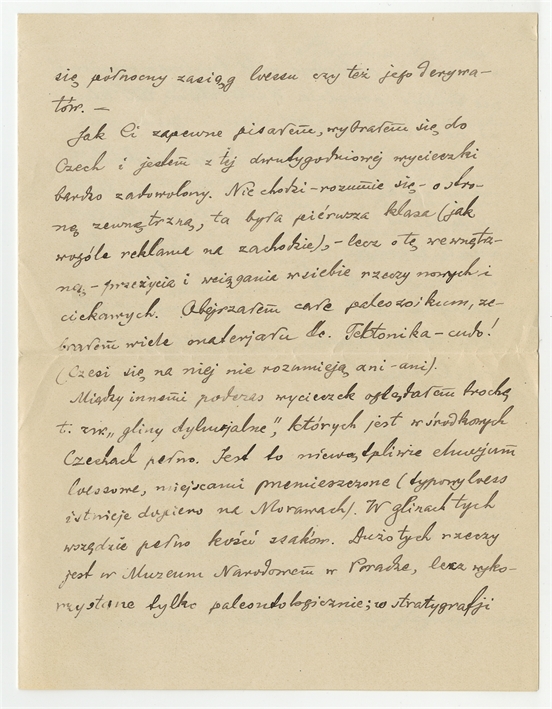 się północny zasiąg loessu czy też jego derywa-
tów. —
Jak Ci zapewne pisałem, wybrałem się do
Czech i jestem z tej dwutygodniowej wycieczki
bardzo zadowolony. Nie chodzi – rozumie się – o stro-
nę zewnętrzną, ta była piérwsza klasa (jak
wogóle reklama na zachodzie), – lecz o tę wewnętrz-
ną – przeżycia i wciągania w siebie rzeczy nowych i
ciekawych. Obejrzałem całe paleozoikum, ze-
brałem wiele materjału etc. Tektonika – cudo!
(Czesi się na niej nie rozumieją ani-ani).
Między innemi podczas wycieczek oglądałem trochę
t. zw. „gliny dyluwjalne”, których jest w środkowych
Czechach pełno. Jest to niewątpliwie eluwjum
loessowe, miejscami przemieszczone (typowy loess
istnieje dopiero na Morawach). W glinach tych
wszędzie pełno kości ssaków. Dużo tych rzeczy
jest w Muzeum Narodowem w Pradze, lecz wyko-
rzystane tylko paleontologicznie; w stratygrafji